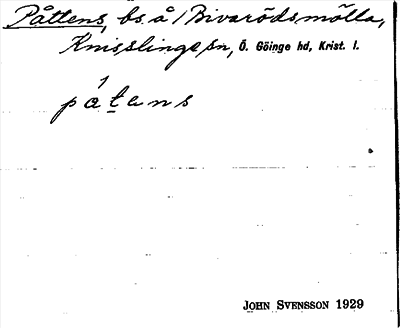 Påttens, bs. å /Bivarödsmölla,
Knisslinge sn, Ö. Göinge hd, Krist. l.
pátens
JOHN SVENSSON 1929